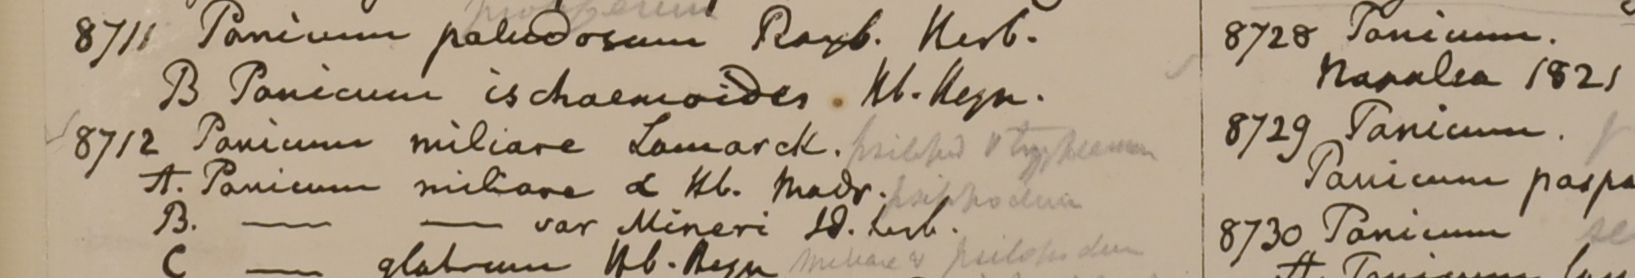 8711 Panicum paludosum Roxb. Herb.
B Panicum ischaemoides. Hb. Heyn.
8712 Panicum miliare Lamarck.
A. Panicum miliare α Hb. Madr. psilopodium
B. — — var Mineri Id. herb.
C — glabrum Hb. Heyn miliare & psilopodium
8728 Panicum.
Navalea 1821
8729 Panicum.
Panicum paspa
8730 Panicum
A. Panicum